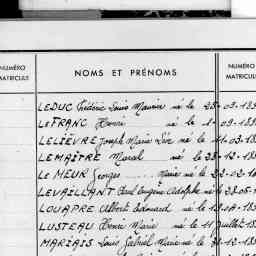 NUMÉRO MATRICULE NOMS ET PRÉNOMS NUMÉRO MATRICULE
LEDUC Frédéric Louis Maurice né le 25-03-189
LEFRANC Henri né le 1-09-189
LELIÈVRE Joseph Marie Léon né le 11-03-18
LEMAÎTRE Marcel né le 28-12-18
LE MEUR Georges né le 22-02-18
LEVAILLANT Paul Eugène Adolphe né le 28-05-1
LOUAPRE Albert Edouard né le 19-1-18
LUSTEAU Henri Marie né le 11 juillet 18
MARIAIS Louis Gabriel Marie né le 31-12-18